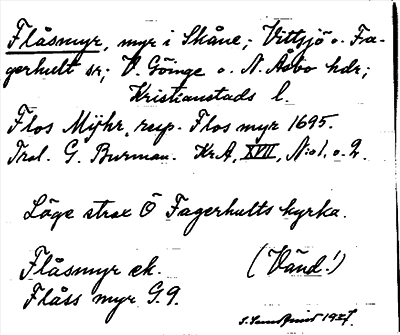 Flåsmyr, myr i Skåne; Vittsjö o. Fa-
gerhult sr; V. Göinge o. N. Åsbo hdr;
Kristianstads l.
Flos Mÿhr, resp. Flos myr 1695.
Trol. G. Burman. KrA, XVII, N:o 1. o. 2.
Läge strax Ö Fagerhults kyrka.
Flåsmyr ek. (Vänd!)
Flåss myr G. 9.
1927.